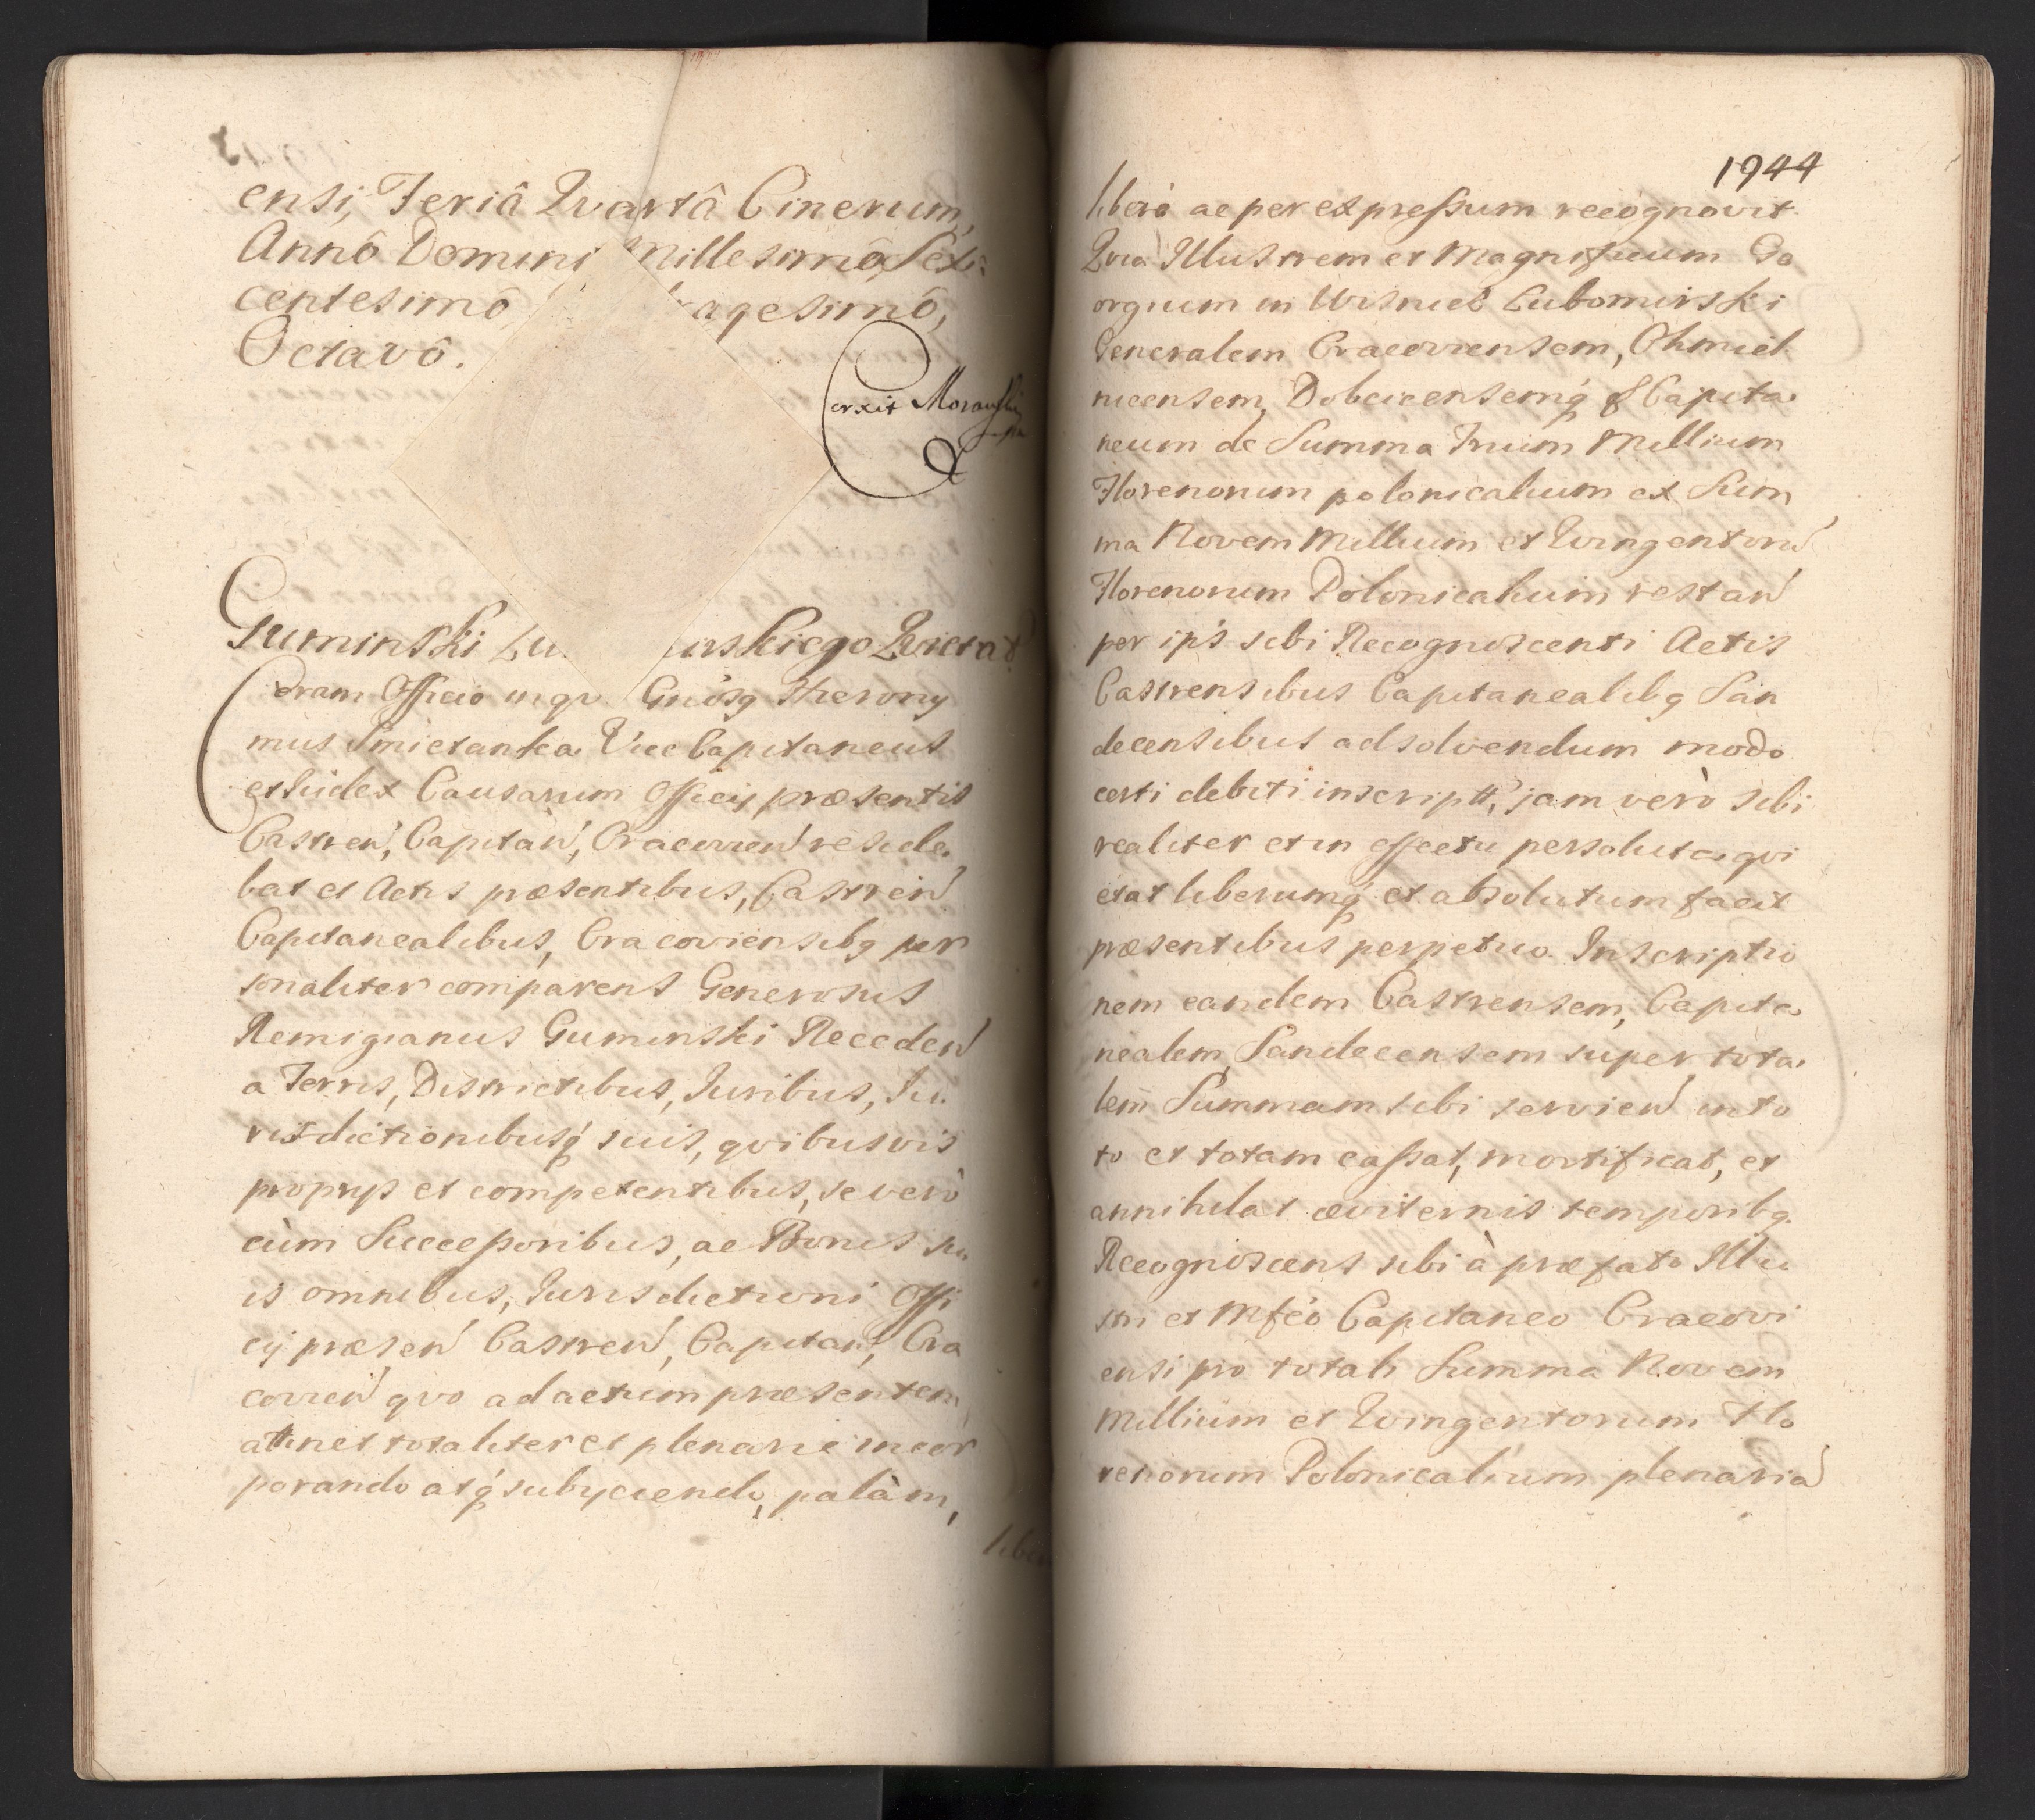 ensi, Feriâ Qvartâ Cinerum,
Annô Domini Millesimô Sex:
centesimô agesimô,
Octavô.
Corxit Morawski
Guminski Lu urskiego Qvietat
Coram Officio in qv Gnosq Hierony
mus Smietanka Vice Capitaneus
et Iudex Causarum Officij præsentis
Castren, Capitan, Cracovien reside.
bat et Actis præsentibus, Castren
Capitanealibus, Cracoviensibq per
sonaliter comparens Generosus
Remigianus Guminski Receden
a Terris, Districtibus, Iuribus, Iu.
risdictionibusq suis, qvibusvis
proprijs et competentibus, se verò
cùm Successoribus, ac Bonis su.
is omnibus, Iurisdictioni Offi
cij præsen Castren, Capitan, Cra
covien qvo ad actum præsentem
attinet totaliter et plenarie incor
porando atq subijciendo, palàm,
liberè
1944
liberè ac per expressum recognovit.
Qvia Illustrem et Magnificum Ge
orgium in Wisnicz Lubomirski
Generalem Cracoviensem, Chmiel
nicensem, Dobcicensemq & Capita
neum de Summa Trium Millium
Florenorum polonicalium ex Sum
ma Novem Millium et Qvingentoru
Florenorum Polonicalium restan
per ips sibi Recognoscenti Actis
Castrensibus Capitanealibq San
decensibus ad solvendum modo
certi debiti inscriptt, jam verò sibi
realiter et in effectu persoluta qvi
etat liberumq et absolutum facit
præsentibus perpetuo. Inscriptio
nem eandem Castrensem, Capita
nealem, Sandecensem super tota.
lem Summam sibi servien in to
to et totam cassat, mortificat, et
annihilat æviternis temporibq.
Recognoscens sibi à præfato Illu
stri et Mfco Capitaneo Cracovi
ensi pro totali Summa Novem
Millium et Qvingentorum Flo
renorum Polonicalium plenaria